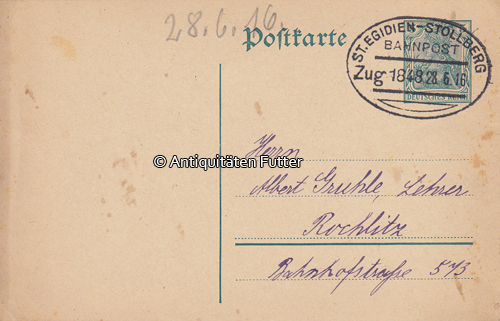 28.6.16.
Postkarte
ST. EGIDIEN-STOLLBERG
BAHNPOST
Zug 1848 28 6.16
DEUTSCHES REICH
Herrn
© Antiquitäten Futter
Albert Gruhle, Lehrer
Rochlitz
Bahnhofstraße 573